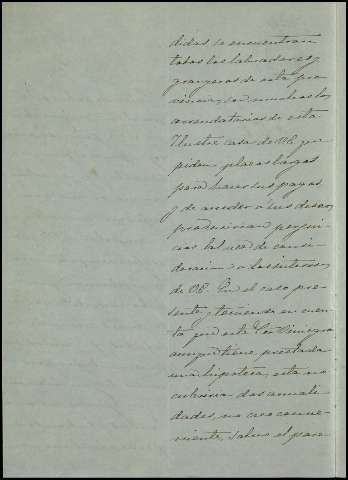 didas se encuentran
todos los labradores y
granjeros de esta pro
vincia, son muchos los
arrendatarios de esta
Ilustre casa de VE que
piden plazos largos
para hacer sus pagos
y de acceder a sus deseos
producirian perjui-
cios tal vez de consi-
deracion a los intereses
de VE. En el caso pre-
sente, teniendo en cuen-
ta que este Sor
aunque tiene prestada
una hipoteca, esta no
cubriria dos anuali-
dades, no creo conve-
niente, salvo el pare